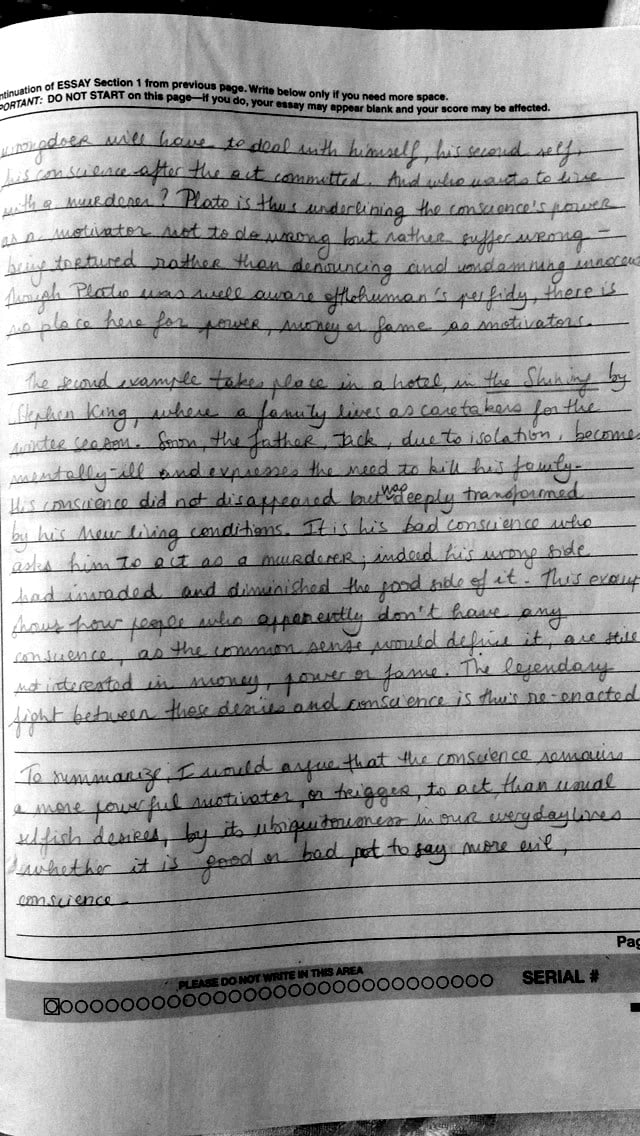 ntinuation of ESSAY Section 1 from previous page. Write below only if you need more space.
PORTANT: DO NOT START on this page—if you do, your essay may appear blank and your score may be affected.
wrongdoer will have to deal with himself, his second self,
his conscience after the act committed. And who wants to live
with a murderer? Plato is thus underlining the conscience's power
as a motivator not to do wrong but rather suffer wrong –
being tortured rather than denouncing and condamning innocus
Though Plato was well aware of human's perfidy, there is
no place here for power, money or fame as motivators.
The second example takes place in a hotel, in the Shining by
Stephen King, where a family lives as caretakers for the
winter season. Soon, the father, Jack, due to isolation, becomes
mentally-ill and expresses the need to kill his family.
His conscience did not disappeared but was deeply transformed
by his new living conditions. It is his bad conscience who
asks him to act as a murderer; indeed his wrong side
had invaded and diminished the good side of it. This examp
shows how people who apparently don't have any
conscience, as the common sense would define it, are still
not interested in money, power or fame. The legendary
fight between those desires and conscience is thus re-enacted
To summarize, I would argue that the conscience remains
a more powerful motivator, or trigger, to act, than usual
selfish desires, by its ubiquitousness in our everyday lives
whether it is good or bad, not to say more evil,
conscience.
Pag
PLEASE DO NOT WRITE IN THIS AREA
SERIAL #